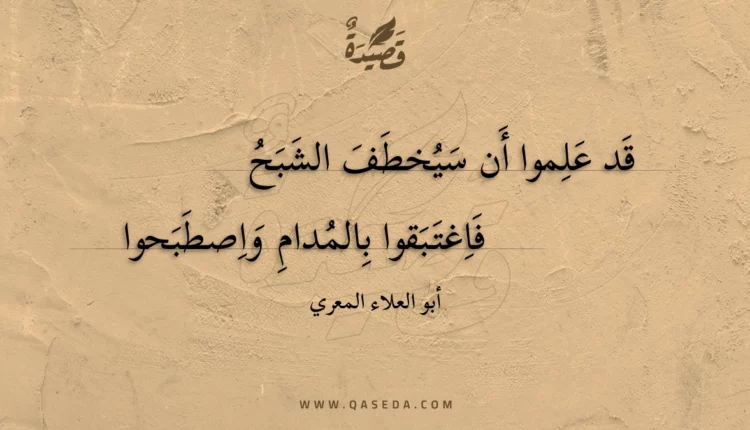 قَصِيدَةٌ
قَد عَلِموا أَن سَيُخطَفَ الشَبَحُ
فَاِغتَبَقوا بِالمُدامِ وَاِصطَبَحوا
أبو العلاء المعري
WWW.QASEDA.COM